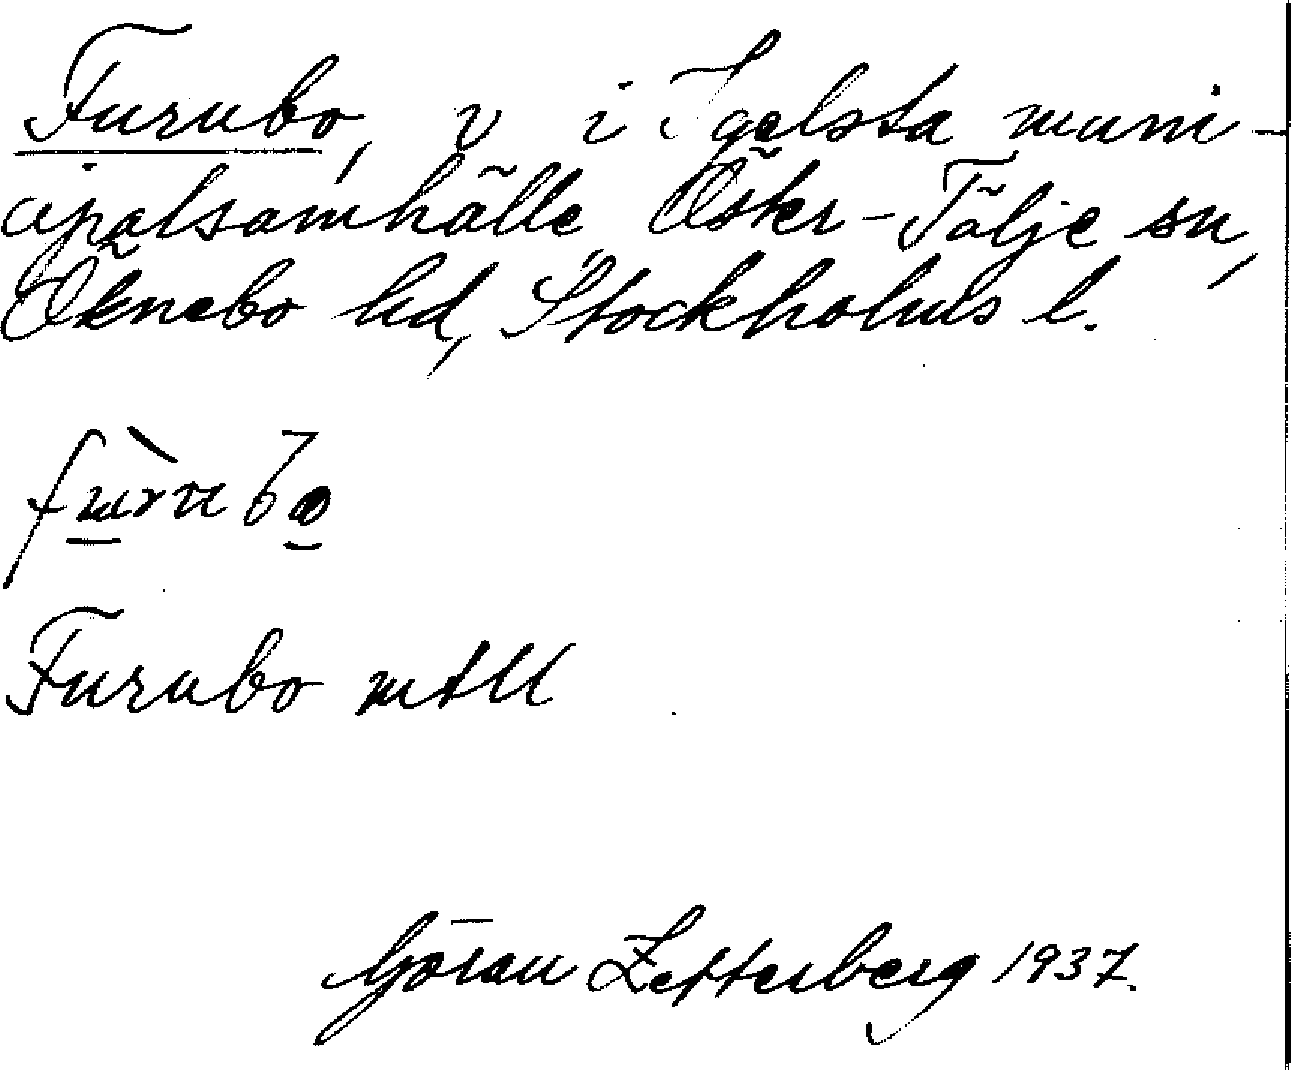 Furubo, v i Igelsta muni-
cipalsamhälle, Öster-Tälje sn,
Öknebo hd, Stockholms l.
Furubo mtll
Göran Zetterberg 1937.